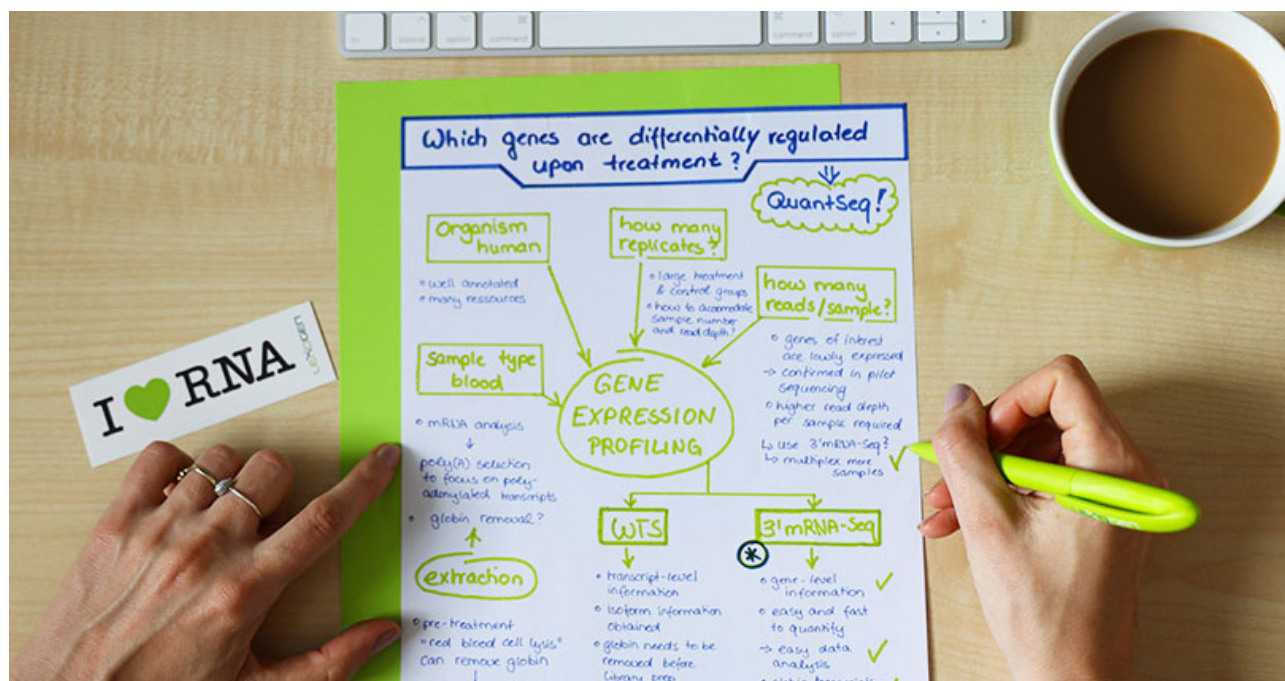 fn
control
option
command
command
option
Which genes are differentially regulated
upon treatment?
QuantSeq!
Organism
human
• well annotated
• many ressources
how many
replicates?
• large treatment
& control groups
• how to accomodate
sample number
and read depth?
how many
reads/sample?
• genes of interest
are lowly expressed
→ confirmed in pilot
sequencing
• higher read depth
per sample required
↳ use 3'mRNA-Seq?
↳ multiplex more
samples ✓
sample type
blood
• mRNA analysis
↓
poly(A) selection
to focus on poly-
adenylated transcripts
• globin removal?
GENE
EXPRESSION
PROFILING
extraction
• pre-treatment
"red blood cell lysis"
can remove globin
WTS
• transcript-level
information
• Isoform information
obtained
• globin needs to be
removed before
library prep
3'mRNA-Seq
*
• gene-level
information ✓
• easy and fast
to quantify
→ easy data
analysis ✓
I ♥ RNA
LEXOGEN